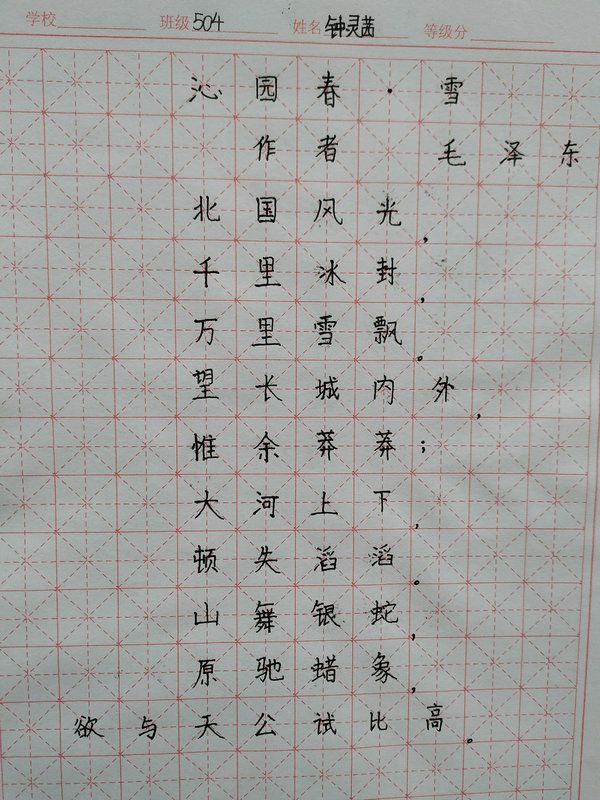 学校 班级 504 姓名 钟灵茜 等级分
沁园春·雪
作者 毛泽东
北国风光,
千里冰封,
万里雪飘。
望长城内外,
惟余莽莽;
大河上下,
顿失滔滔。
山舞银蛇,
原驰蜡象,
欲与天公试比高。